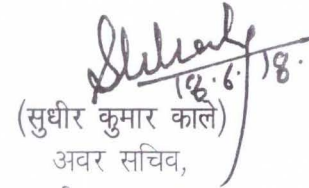 18.6.18.
(सुधीर कुमार काले)
अवर सचिव,